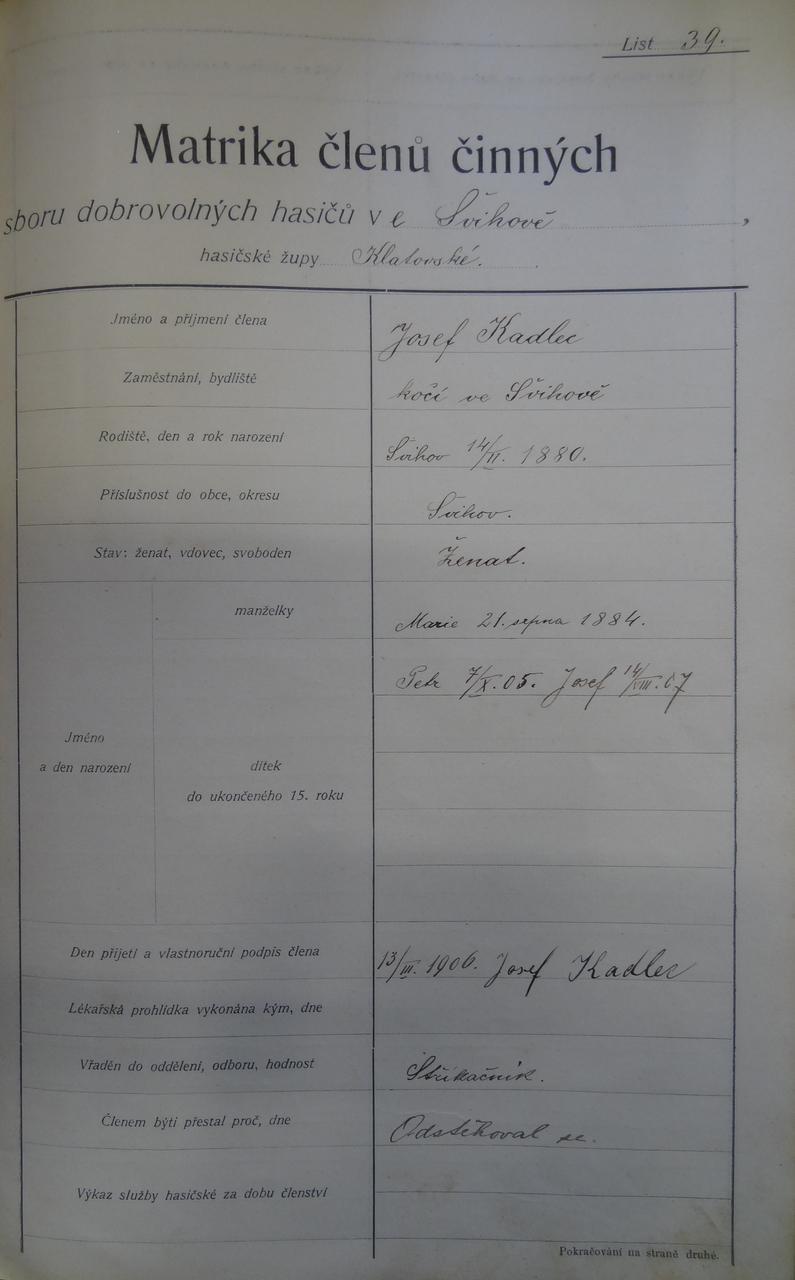 List 39.
Matrika členů činných
sboru dobrovolných hasičů v e Švihově,
hasičské župy Klatovské.
Jméno a příjmení člena Josef Kadlec
Zaměstnání, bydliště kočí ve Švihově
Rodiště, den a rok narození Švihov 14/II. 1880.
Příslušnost do obce, okresu Švihov.
Stav: ženat, vdovec, svoboden Ženat.
manželky Marie 21. srpna 1884.
Petr 7/X. 05. Josef 14/VIII. 07
Jméno
a den narození
dítek
do ukončeného 15. roku
Den přijetí a vlastnoruční podpis člena 13/III. 1906. Josef Kadlec
Lékařská prohlídka vykonána kým, dne
Vřaděn do oddělení, odboru, hodnost Stříkačník.
Členem býti přestal proč, dne Odstěhoval se.
Výkaz služby hasičské za dobu členství
Pokračování na straně druhé.